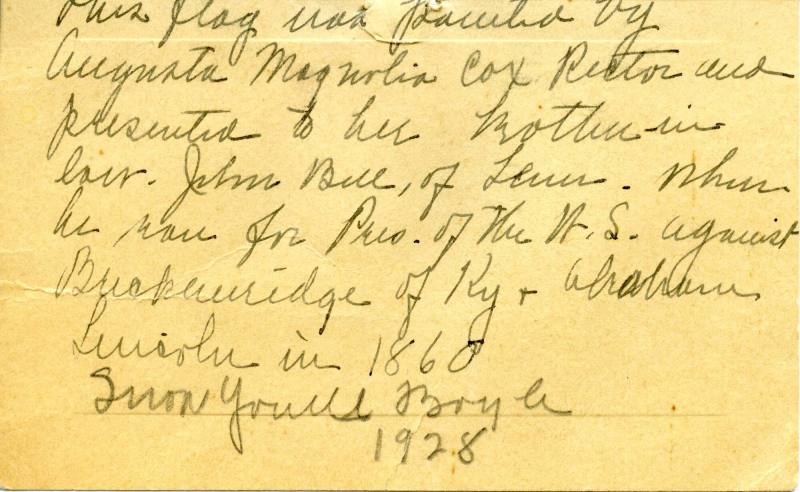 This flag was painted by
Augusta Magnolia Cox Rector and
presented to her brother-in
law. John Bell, of Tenn. When
he ran for Pres. of the U.S. against
Breckenridge of Ky & Abraham
Lincoln in 1860
Boyle
1928